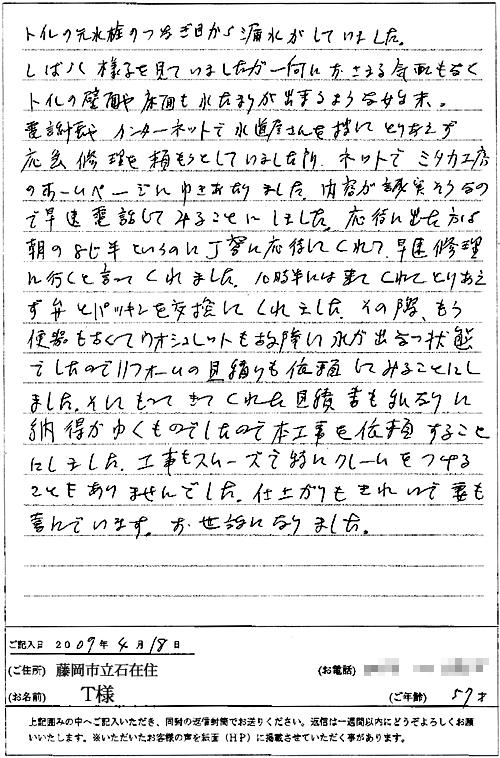 トイレの元水栓のつなぎ目から漏水がしていました。
しばらく様子を見ていましたが一向におさまる気配もなく
トイレの壁面や床面も水たまりが出来るような始末。
電話帳や インターネットで水道屋さんを捜し とりあえず
応急修理を頼もうとしていました所、ネットで ミタカ工房
のホームページにゆきあたりました。内容が誠実そうなの
で早速電話してみることにしました。応待に出た方は
朝の8時半というのに丁寧に応待してくれて、早速修理
に行くと言ってくれました。10時半には来てくれてとりあえ
ず弁とパッキンを交換してくれました。その際、もう
便器も古くてウオシュレットも故障し水が出る状態
でしたのでリフォームの見積りも依頼してみることにし
ました。そしてもってきてくれた見積書も私なりに
納得がゆくものでしたので本工事を依頼すること
にしました。工事もスムーズで特にクレームをつける
こともありませんでした。仕上がりもきれいで妻も
喜んでいます。お世話になりました。
ご記入日 2009年 4月 18日
(ご住所) 藤岡市立石在住 (お電話)
(お名前) T様 (ご年齢) 57才
上記囲みの中へご記入いただき、同封の返信封筒でお送りください。返信は一週間以内にどうぞよろしくお願
いいたします。※いただいたお客様の声を紙面（HP）に掲載させていただく事があります。